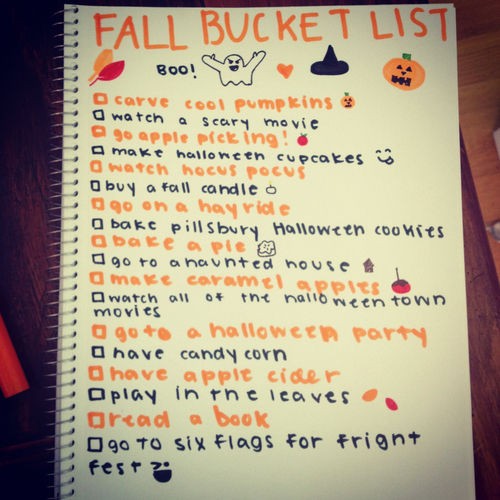 FALL BUCKET LIST
BOO!
carve cool pumpkins
watch a scary movie
go apple picking!
make halloween cupcakes
watch hocus pocus
buy a fall candle
go on a hayride
bake pillsbury Halloween cookies
bake a pie
go to a haunted house
make caramel apples
watch all of the halloweentown
movies
go to a halloween party
have candy corn
have apple cider
play in the leaves
read a book
go to six flags for fright
fest